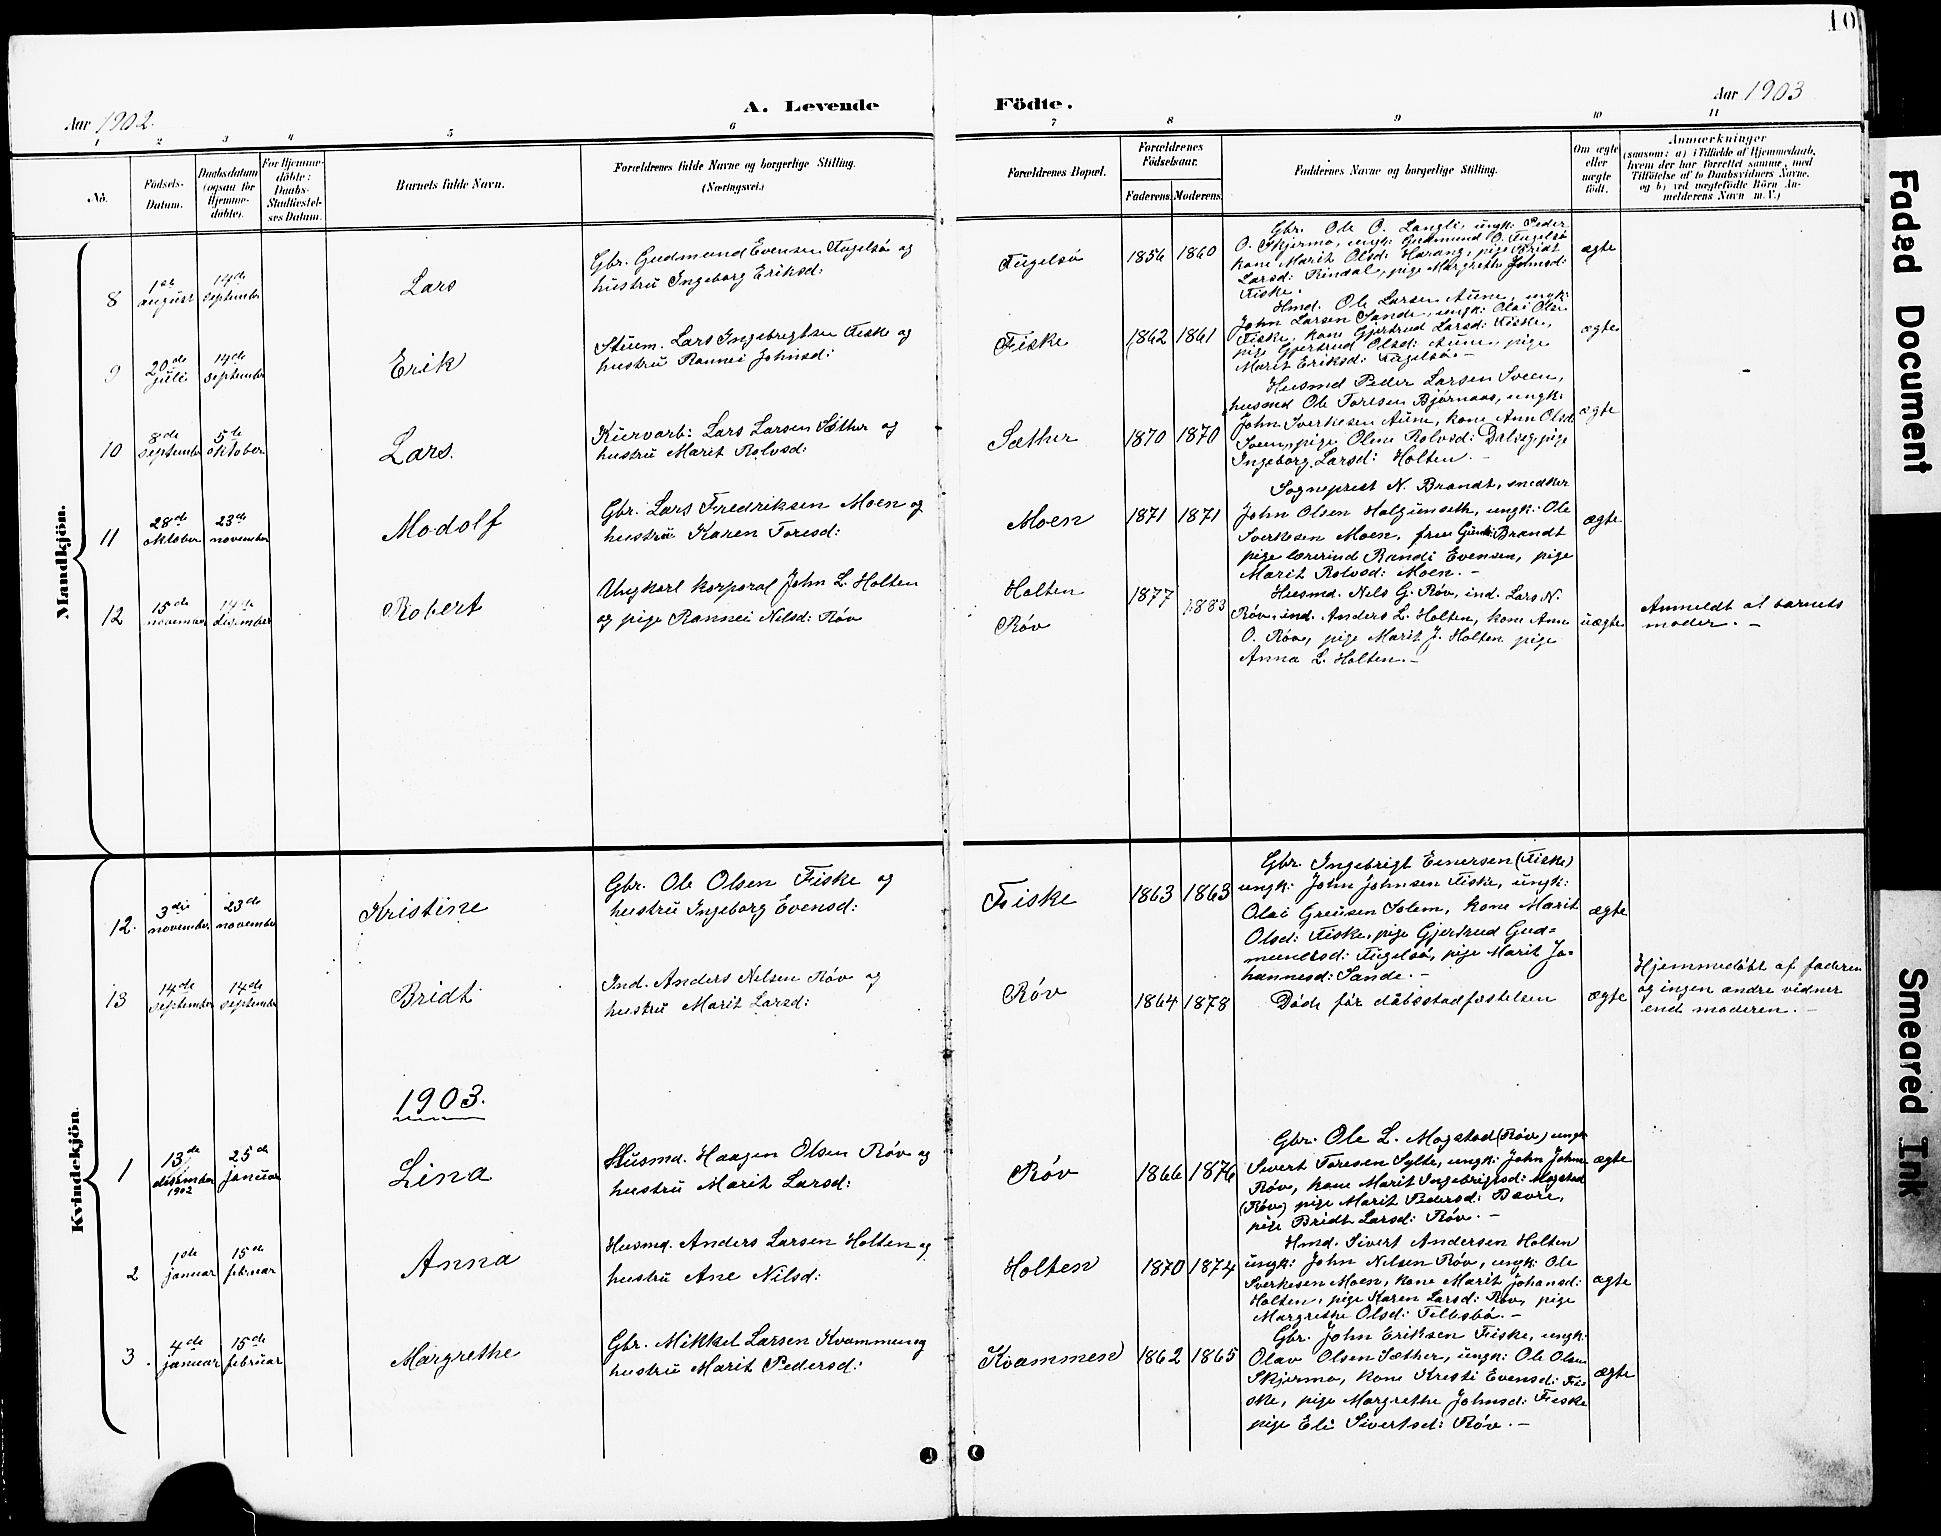 10
Aar 1902.
A. Levende
Födte.
Aar 1903
1 2 3 4 5 6 7 8 9 10 11
Nö.
Födsels-
Datum.
Daabsdatum
(ogsaa for
Hjemme-
döbte).
For Hjemme-
döbte:
Daabs-
Stadfæstel-
ses Datum.
Barnets fulde Navn.
Forældrenes fulde Navne og borgerlige Stilling.
(Næringsvei.)
Forældrenes Bopæl.
Forældrenes
Födselsaar.
Faderens. Moderens.
Faddernes Navne og borgerlige Stilling.
Om ægte
eller
uægte
födt.
Anmærkninger
(saasom: a) i Tilfælde af Hjemmedaab,
hvem der har forrettet samme, med
Tilföielse af to Daabsvidners Navne,
og b) ved uægtefödte Börn An-
melderens Navn m. V.)
Mandkjön.
8
1ste
august
14de
september
Lars
Gbr. Gudmund Evensen Fugelsö og
hustru Ingeborg Eriksd:
Fugelsö
1856 1860
Gbr. Ole O. Langli, ungk: Peder
O. Skjermo, ungk: Gudmund O. Fugelsö
kone Marit Olsd: Harang, pige Bridt
Larsd: Rindal, pige Margrethe Johnsd:
Fiske.
ægte
9
20de
juli
14de
september
Erik
Stuem. Lars Ingebregtsen Fiske og
hustru Rannei Johnsd:
Fiske
1862 1861
Hmd. Ole Larsen Aune, ungk:
John Larsen Sande, ungk: Olai Olsen
Fiske, kone Gjertrud Larsd: Fiske,
pige Gjertrud Olsd: Aune, pige
Marit Eriksd: Fugelsö. –
ægte
10
8de
september
5te
oktober
Lars.
Kurvarb: Lars Larsen Sæther og
hustru Marit Rolvsd:
Sæther
1870 1870
Husmd Peder Larsen Sveen,
husmd Ole Toresen Björnaas, ungk:
John Sverkesen Aune, kone Ann Olsd
Sveen, pige Oline Rolvsd: Dalseg, pige
Ingeborg Larsd: Holten. –
ægte
11
28de
oktober
23de
november
Modolf
Gbr. Lars Fredriksen Moen og
hustru Karen Toresd:
Moen
1871 1871
Sogneprest N. Brandt, snedker
John Olsen Halgunseth, ungk: Ole
Sverkesen Moen, frue Brandt
pige lærerind Randi Evensen, pige
Marit Rolvsd: Moen. –
ægte
12
15de
november
14de
desember
Robert
Ungkarl korporal John L. Holten
og pige Rannei Nilsd: Röv
Holten
Röv
1877 1883
Husmd. Nils G. Röv, ind. Lars N.
Röv, ind. Anders L. Holten, kone Ann
O. Röv, pige Marit J. Holten pige
Anna L. Holten. –
uægte
Anmeldt af barnets
moder. –
Kvindekjön.
12.
3die
november
23de
november
Kristine
Gbr. Ole Olsen Fiske og
hustru Ingeborg Evensd:
Fiske
1863 1863
Gbr. Ingebrigt Einersen (Fiske)
ungk: John Johnsen Fiske, ungk:
Olai Greusen Solem, kone Marit
Olsd: Fiske, pige Gjertrud Gud=
mundsd: Fugelsö, pige Marit Jo-
hannesd: Sande. –
ægte
13
14de
september
14de
september
Bridt
Ind. Anders Nilsen Röv og
hustru Marit Larsd:
Röv
1864 1878
Döde för dåbsstadfæstelsen
ægte
Hjemmedöbt af faderen
og ingen andre vidner
end moderen. –
1903.
1
13de
desember
1902
25de
januar
Lina
Husmd. Haagen Olsen Röv og
hustru Marit Larsd:
Röv
1866 1876
Gbr. Ole L. Mogstad (Röv) ungk
Sivert Toresen Sylte, ungk: John Johns
Röv, kone Marit Ingebrigtsd: Mogstad
(Röv) pige Marit Pedersd: Bævre,
pige Bridt Larsd: Röv. –
ægte
2
1ste
januar
15de
februar
Anna
Husmd. Anders Larsen Holten og
hustru Ane Nilsd:
Holten
1870 1874
Hmd. Sivert Andersen Holten
ungk: John Nilsen Röv, ungk: Ole
Sverkesen Moen, kone Marit Johansd:
Holten, pige Karen Larsd: Röv, pige
Margrethe Olsd: –
ægte
3.
4de
januar
15de
februar
Margrethe
Gbr. Mikkel Larsen Kvammen og
hustru Marit Pedersd:
Kvammen
1862 1865
Gbr. John Eriksen Fiske, ungk.
Olav Olsen Sæther, ungk: Ole Olsen
Skjermo, kone Kristi Evensd: Fi-
ske, pige Margrethe Johnsd: Fiske
pige Eli Sivertsd: Röv. –
ægte
Faded Document
Smeared Ink